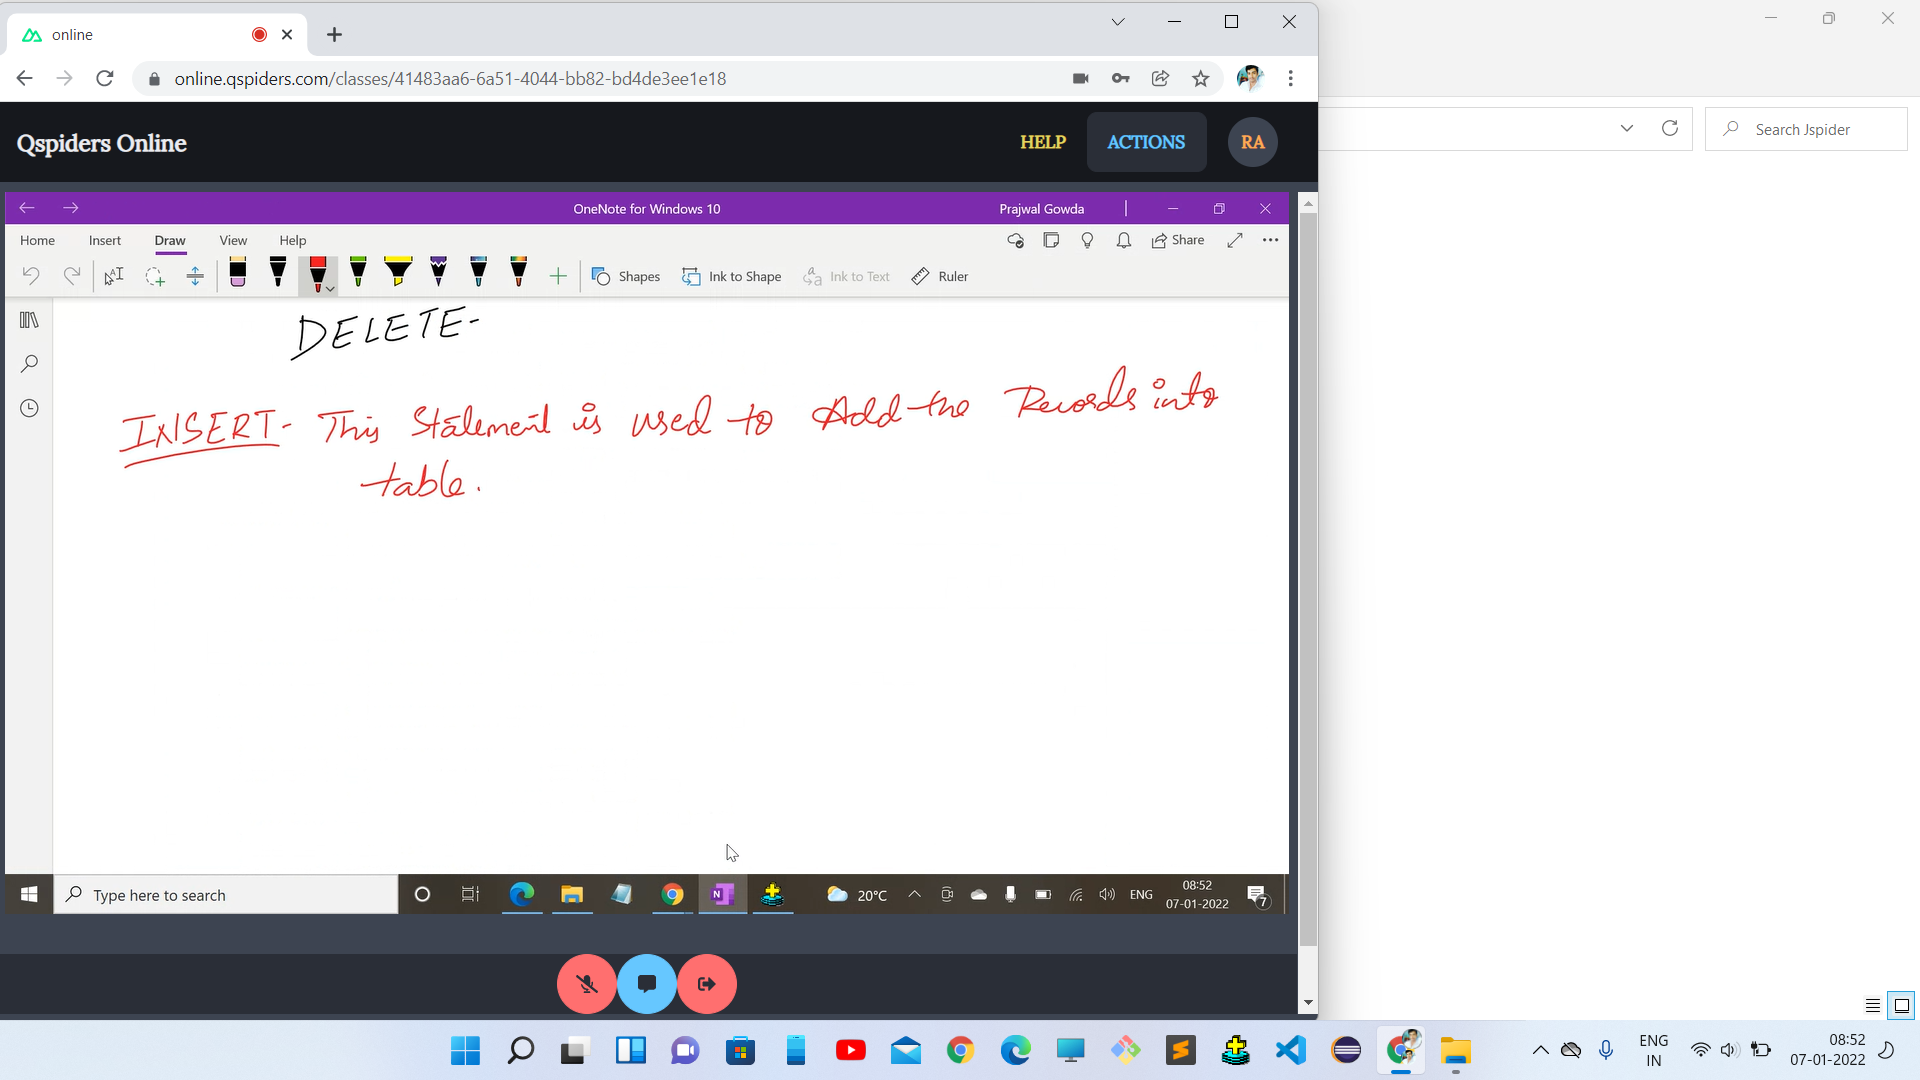 online
online.qspiders.com/classes/41483aa6-6a51-4044-bb82-bd4de3ee1e18
Search Jspider
Qspiders Online
HELP ACTIONS RA
OneNote for Windows 10 Prajwal Gowda
Home Insert Draw View Help Share
Shapes Ink to Shape Ink to Text Ruler
DELETE-
INSERT- This Statement is used to Add the Records into
table.
Type here to search
20°C ENG 08:52
07-01-2022
7
ENG
IN
08:52
07-01-2022